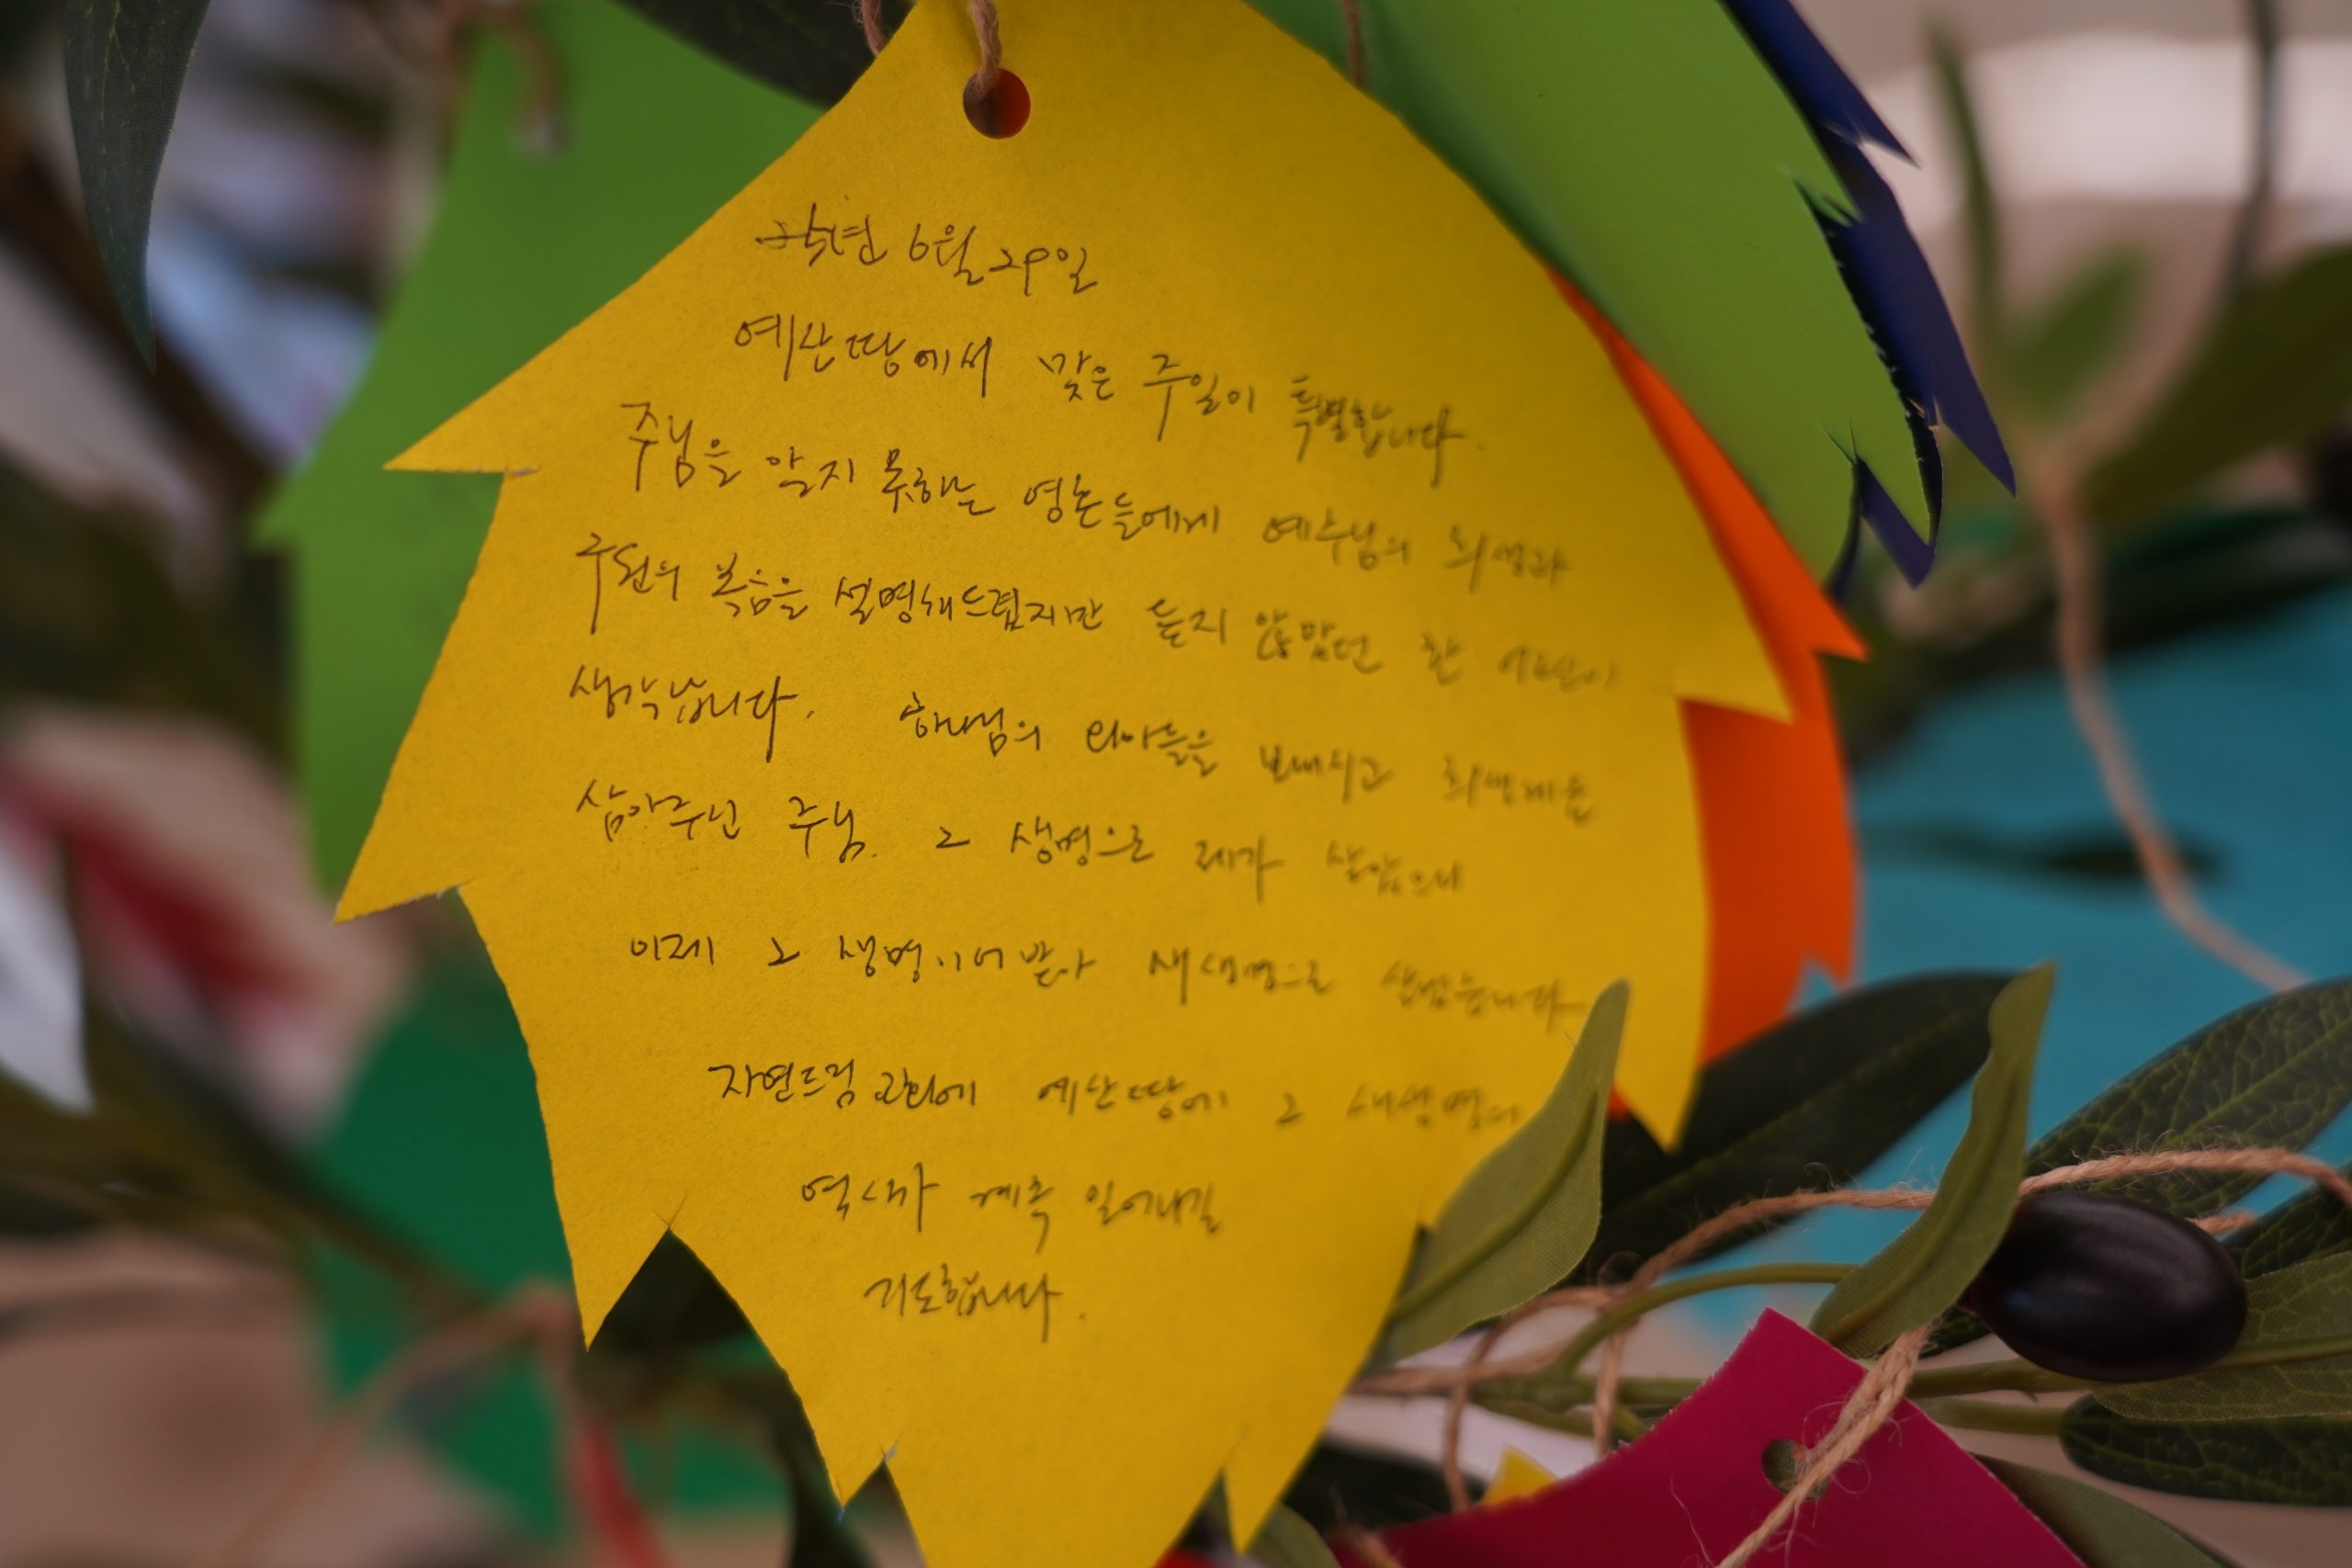 25년 6월 29일
예산땅에서 맞은 주일이 특별합니다.
주님을 알지 못하는 영혼들에게 예수님의 희생과
구원의 복음을 설명해드렸지만 듣지 않았던 한 어르신이
생각납니다. 하나님의 아들을 보내시고 희생제물
삼아주신 주님. 그 생명으로 제가 살았으니
이제 그 생명 이어받아 새생명으로 살겠습니다
자연드림교회에 예산땅에 그 새생명의
역사가 계속 일어나길
기도합니다.